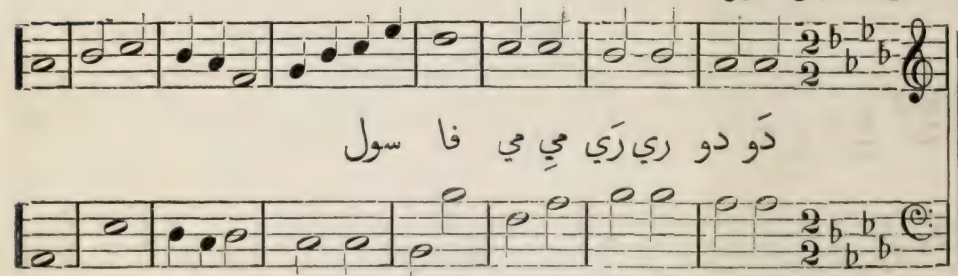 دَو دو ري رَي مي مِي فا سول